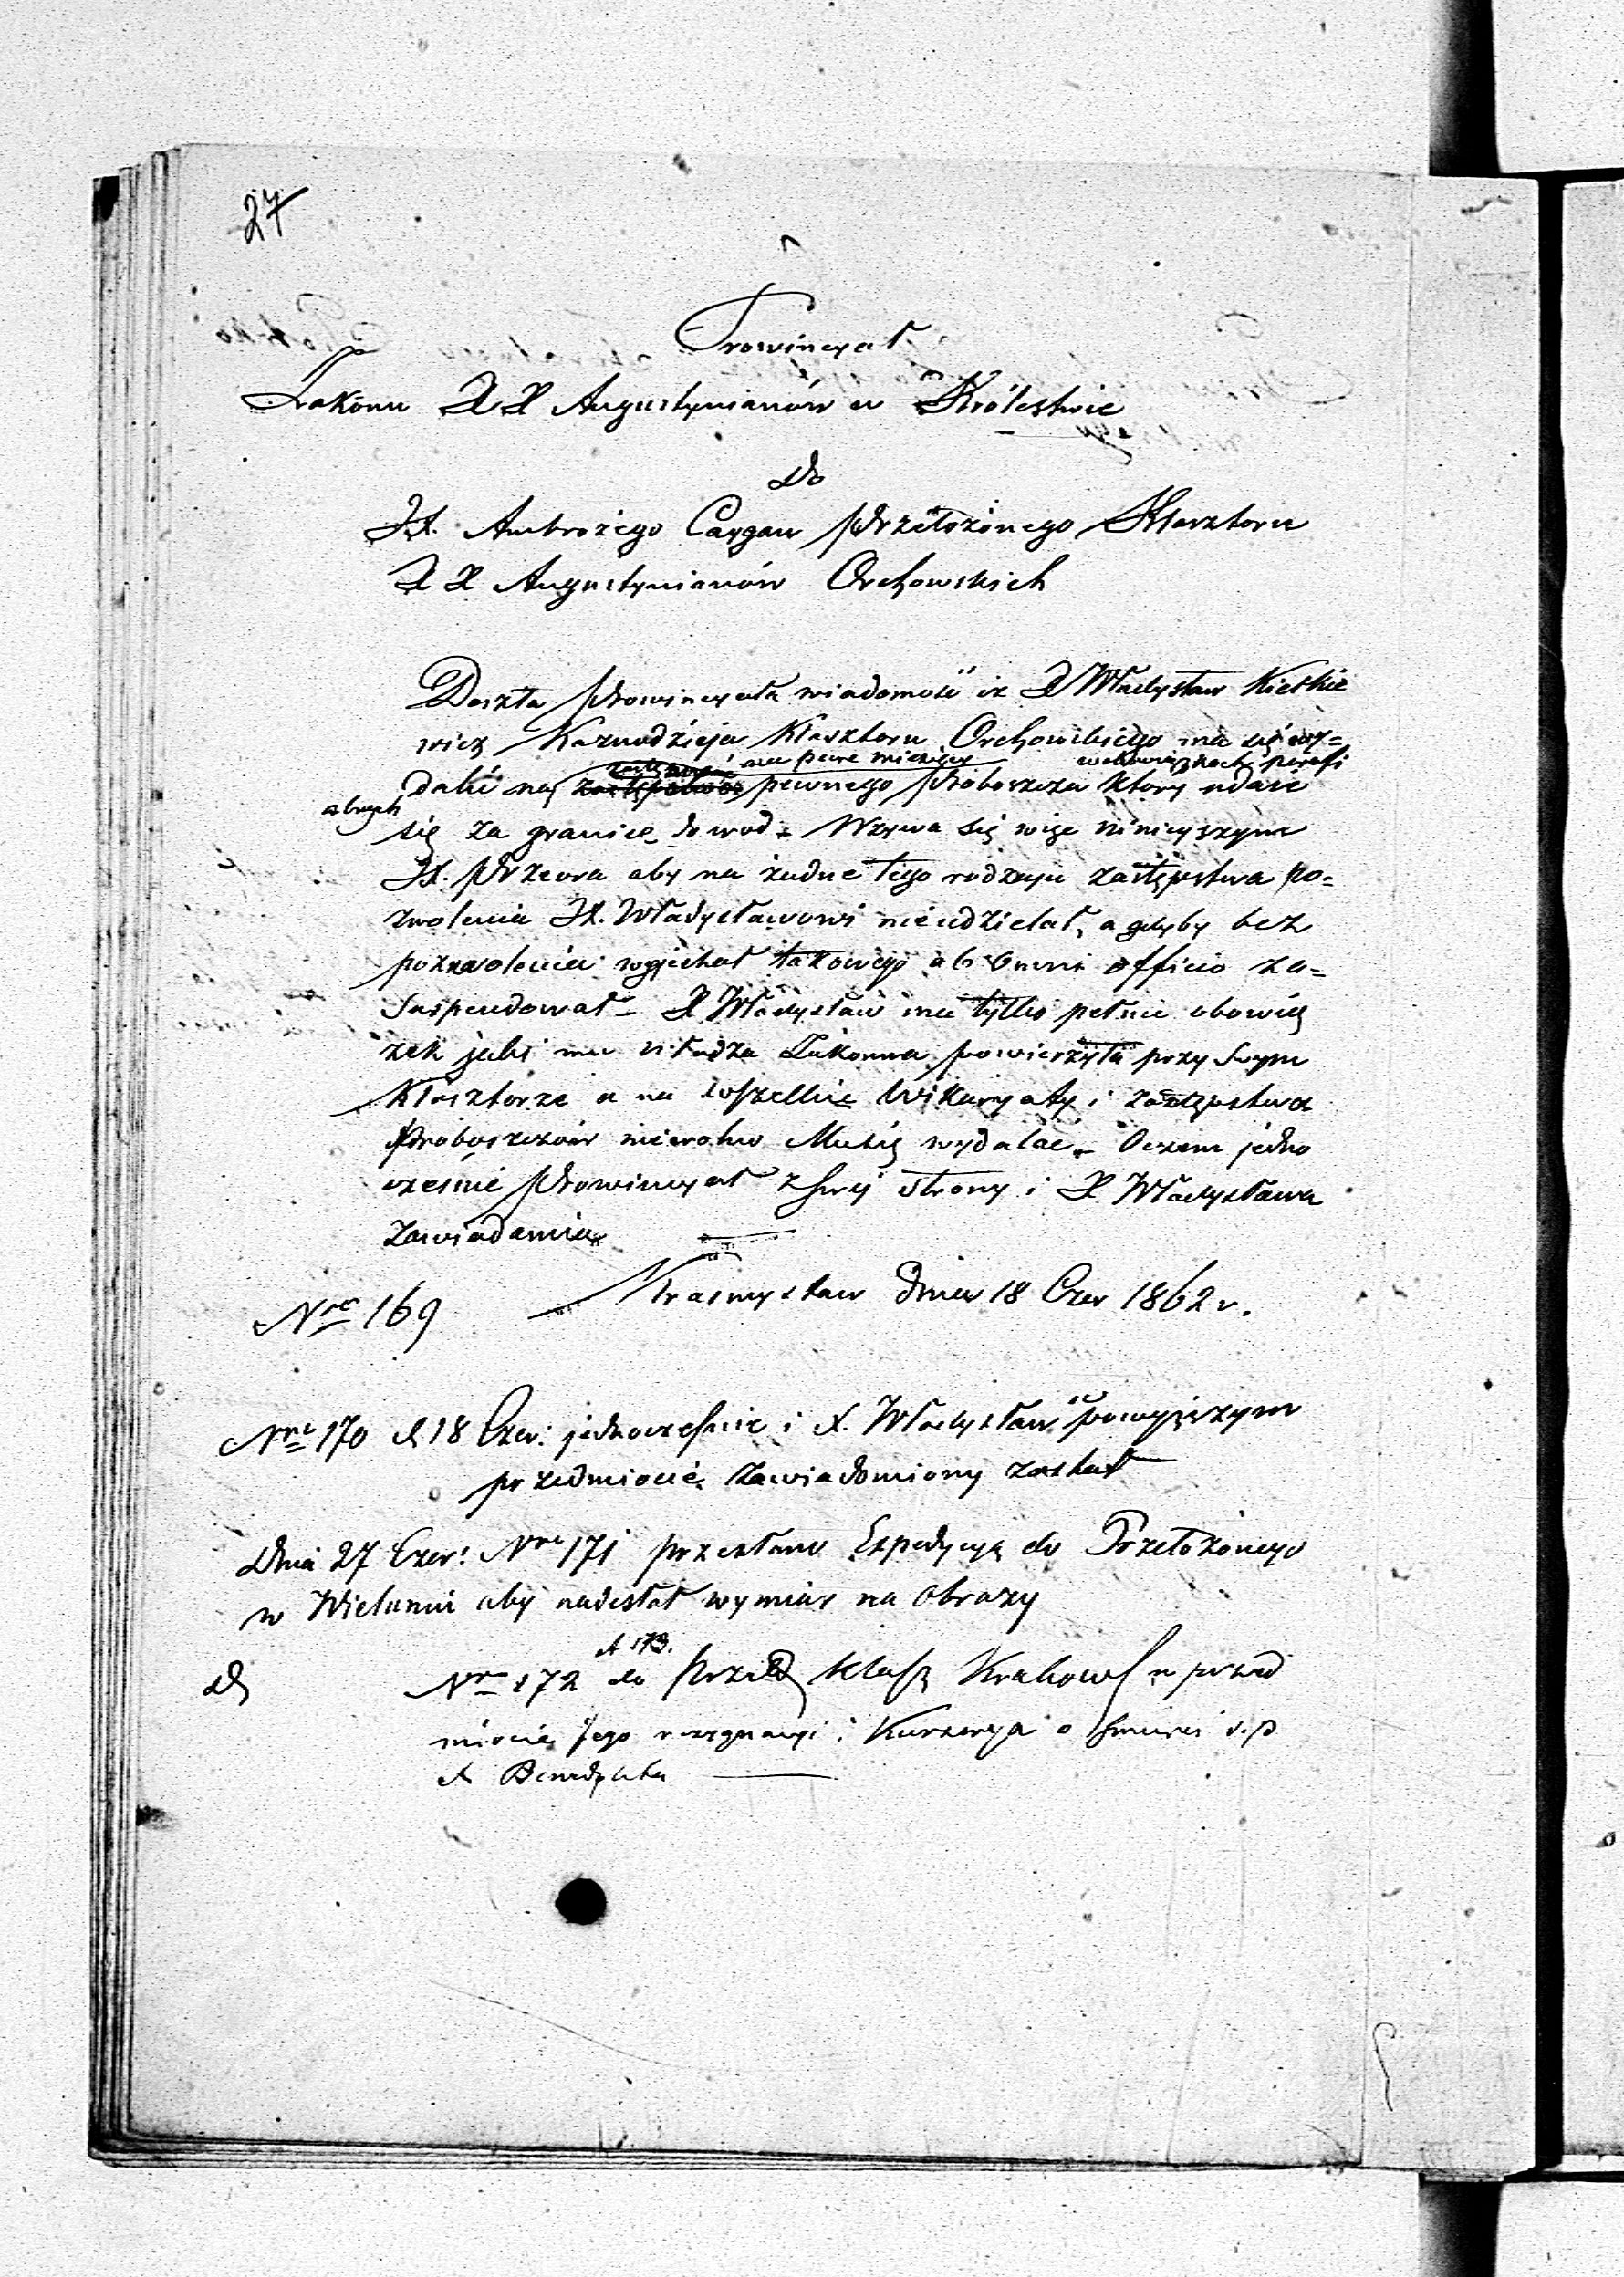 27
Prowincyał
Zakonu XX Augustynianów w Królestwie
Do
JX. Ambrożego Cargan Przełożonego Klasztoru
XX Augustynianów Orchowskich
Doszła Prowincyała wiadomość iż X Władysław Kietkie
wicz Kaznodzieja Klasztoru Orchowskiego ma się wy=
na parę miesięcy w obowiązkach parafi
dalić na zastępstwo pewnego Proboszcza ktory udaie
się za granicę do wod. Wzywa się więc ninieyszym
JX. Przeora aby na żadne tego rodzaju zastępstwa po=
zwolenia JX. Władysławowi nieudzielał, a gdyby bez
pozwolenia wyjechał takowego ab omni officio za=
suspendował – X Władysław ma tylko pełnić obowią
zek jaki mu władza Zakonna powierzyła przy swym
Klasztorze a na wszelkie Wikaryaty i zastępstwa
Proboszczów niewolno Mu się wydalać. Oczem jedno
cześnie Prowincyał z swej strony i X Władysława
zawiadamia
Nro 169
Krasnystaw dnia 18 Czer 1862 r.
Nro 170 d 18 Czer: jednocześnie i X. Władysław w powyższym
przedmiocie zawiadomiony został
Dnia 27 Czer: Nro 171 przesłano Expedycyę do Przełożonego
w Wieluniu aby nadesłał wymiar na obrazy
A 173.
Nro 172 do Przeł Klasz Krakows w przed
miocie Jego rezygnacyi i Kurrenya o śmierci ś.p
X Benedykta